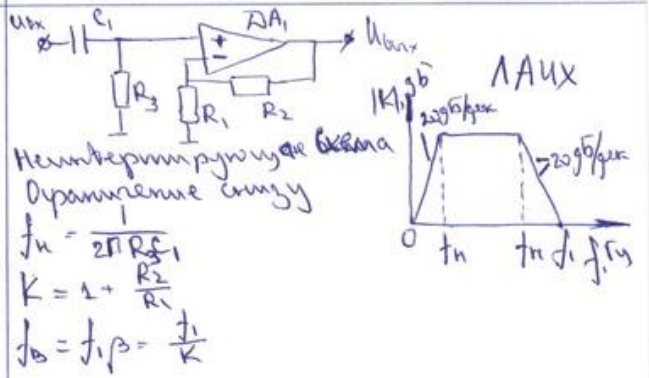 Uвх C1 DA1 Uвых
+
-
R3 R1 R2
ЛАЧХ
|K|, дБ
20дБ/дек
-20дБ/дек
0 fн fн f1 f, Гц
Неинвертирующая схема
Ограничение снизу
fн = 1 / 2π R3C1
K = 1 + R2 / R1
fв = f1β = f1 / K